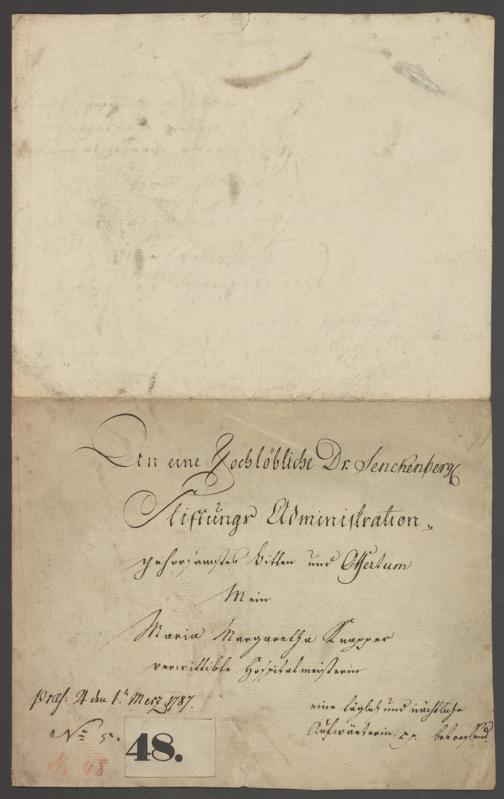 An eine Hochlöbliche Dr. Senckenberg
Stiftungs Administration.
gehorsamstes Bitten und Offertum
Mein
Maria Margaretha Knapper
verwittibte Hospitalmeisterin
eine täglich und nächtliche
Aufwärterin, pp. betreffend.
præs: d den 1ten Merz 1787.
No 5.
No 48
48.